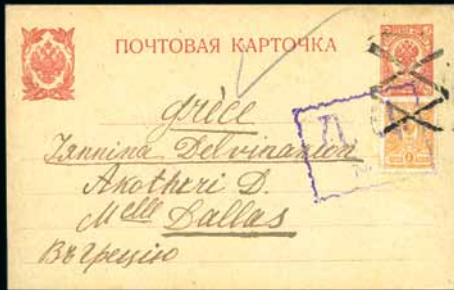 ПОЧТОВАЯ КАРТОЧКА
Grèce
Jannina Delvinanion
Akotheri D.
Melle Dallas
Въ Грецію